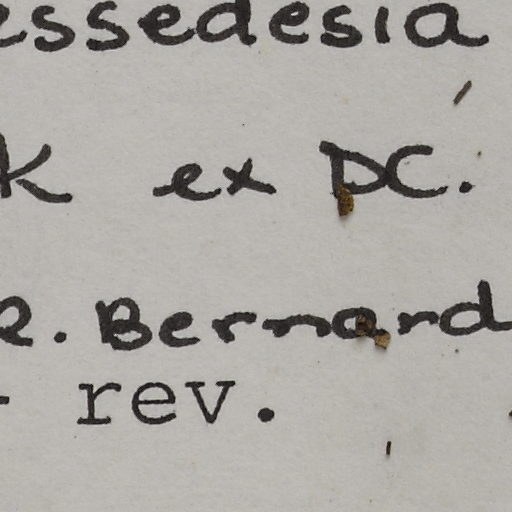 essedesia
k ex DC.
R. Bernard
- rev.